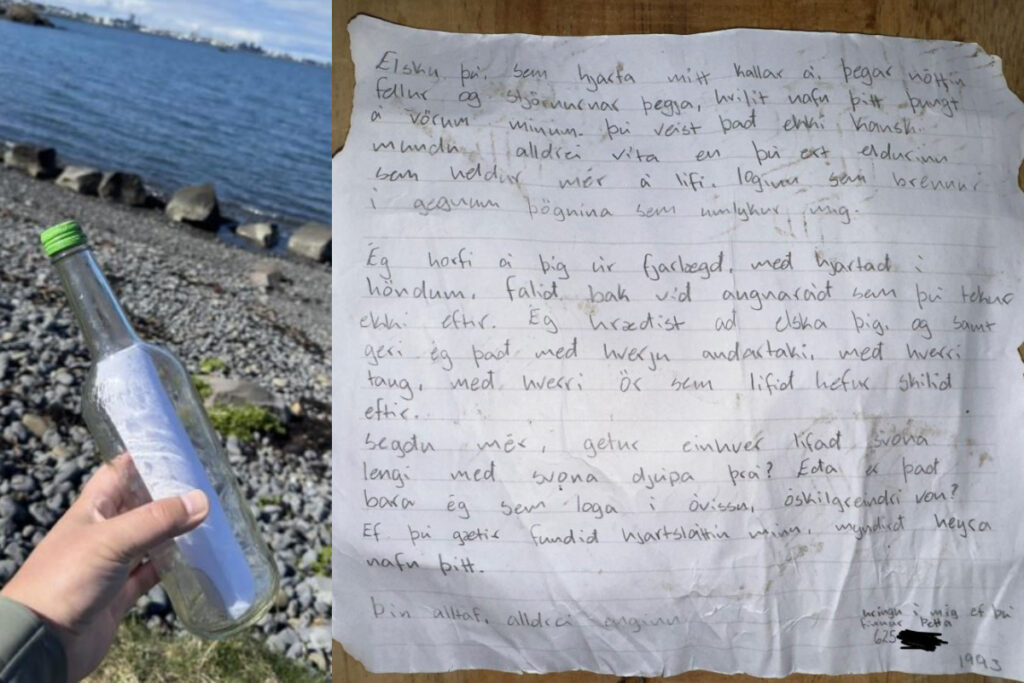 Elsku þú, sem hjarta mitt kallar á, þegar nóttin
fellur og stjörnurnar þegja, hvílit nafn þitt þungt
á vörum mínum. þú veist það ekki kansk.
mundu alldrei vita en þú ert eldurinn
sem heldur mér á lífi. loginn sem brennur
í gegnum þögnina sem umlykur mig.
Ég horfi á þig úr fjarlægd, með hjartad í
höndum, falid bak vid augnaráð sem þú tekur
ekki eftir. Ég hrædist að elska þig, og samt
geri ég það með hverju andartaki, með hverri
taug, með hverri ör sem lífid hefur skilid
eftir.
segdu mér, getur einhver lifad svona
lengi með svona djúpa þrá? Eda er það
bara ég sem loga í óvissu, óskilgreindri von?
Ef þú gætir fundid hjartsláttin minn, myndird heyra
nafn þitt.
þín alltaf, alldrei
hringu í mig ef þú
finnur þetta
625
1993